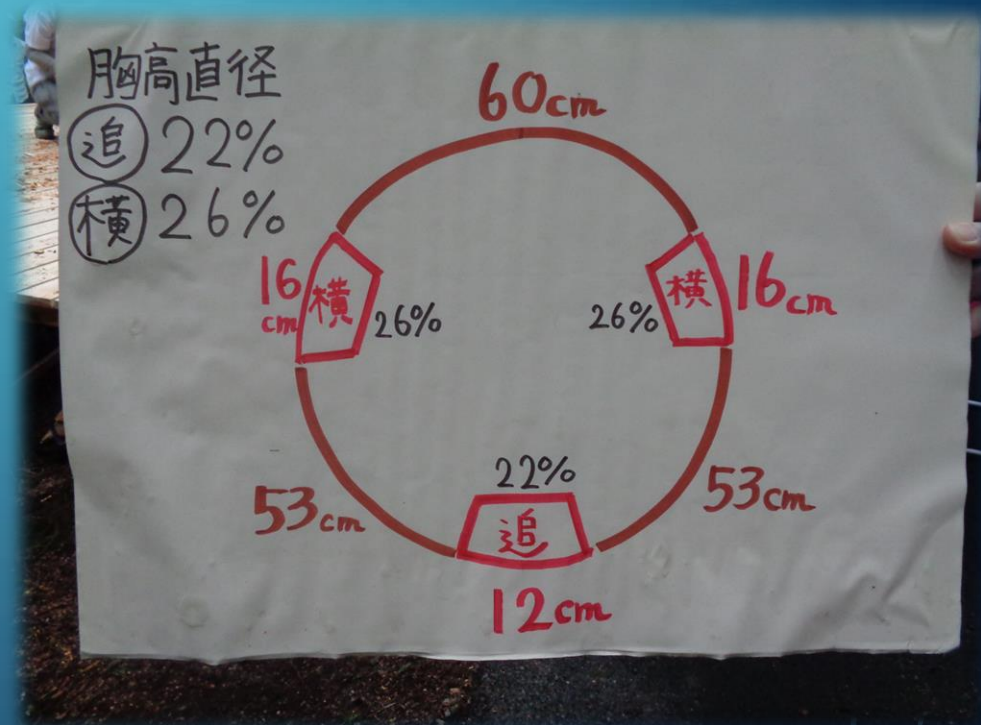 胸高直径
追 22%
横 26%
60cm
16
cm
横
26%
26%
横
16cm
53cm
22%
追
53cm
12cm